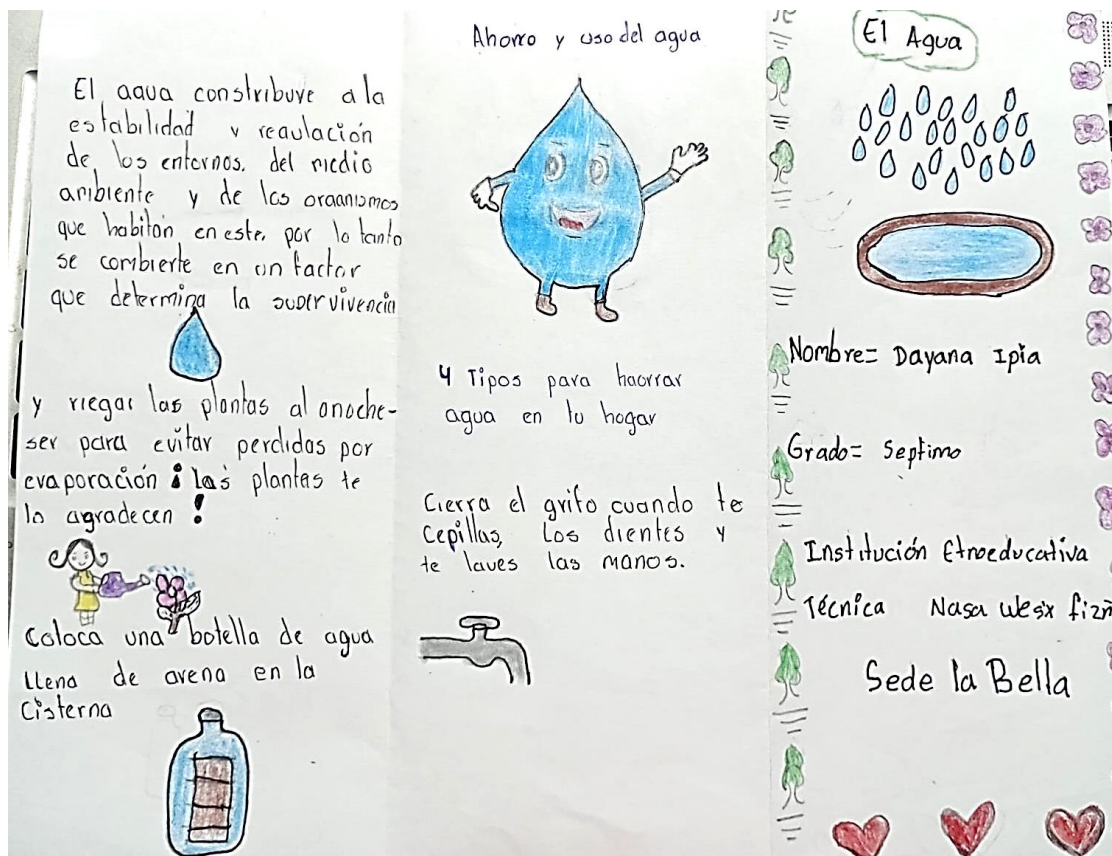 El agua constribuye a la
estabilidad y regulación
de los entornos. del medio
ambiente y de los organismos
que habitan en este, por lo tanto
se combierte en un factor
que determina la supervivencia
y riegas las plantas al anoche-
ser para evitar perdidas por
evaporación ¡ las plantas te
lo agradecen !
Coloca una botella de agua
llena de arena en la
Cisterna
Ahorro y uso del agua
4 Tipos para haorrar
agua en tu hogar
Cierra el grifo cuando te
cepillas, los dientes y
te laves las manos.
El Agua
Nombre= Dayana Ipia
Grado= Septimo
Institución Etnoeducativa
Técnica Nasa Wesx fizñ
Sede la Bella